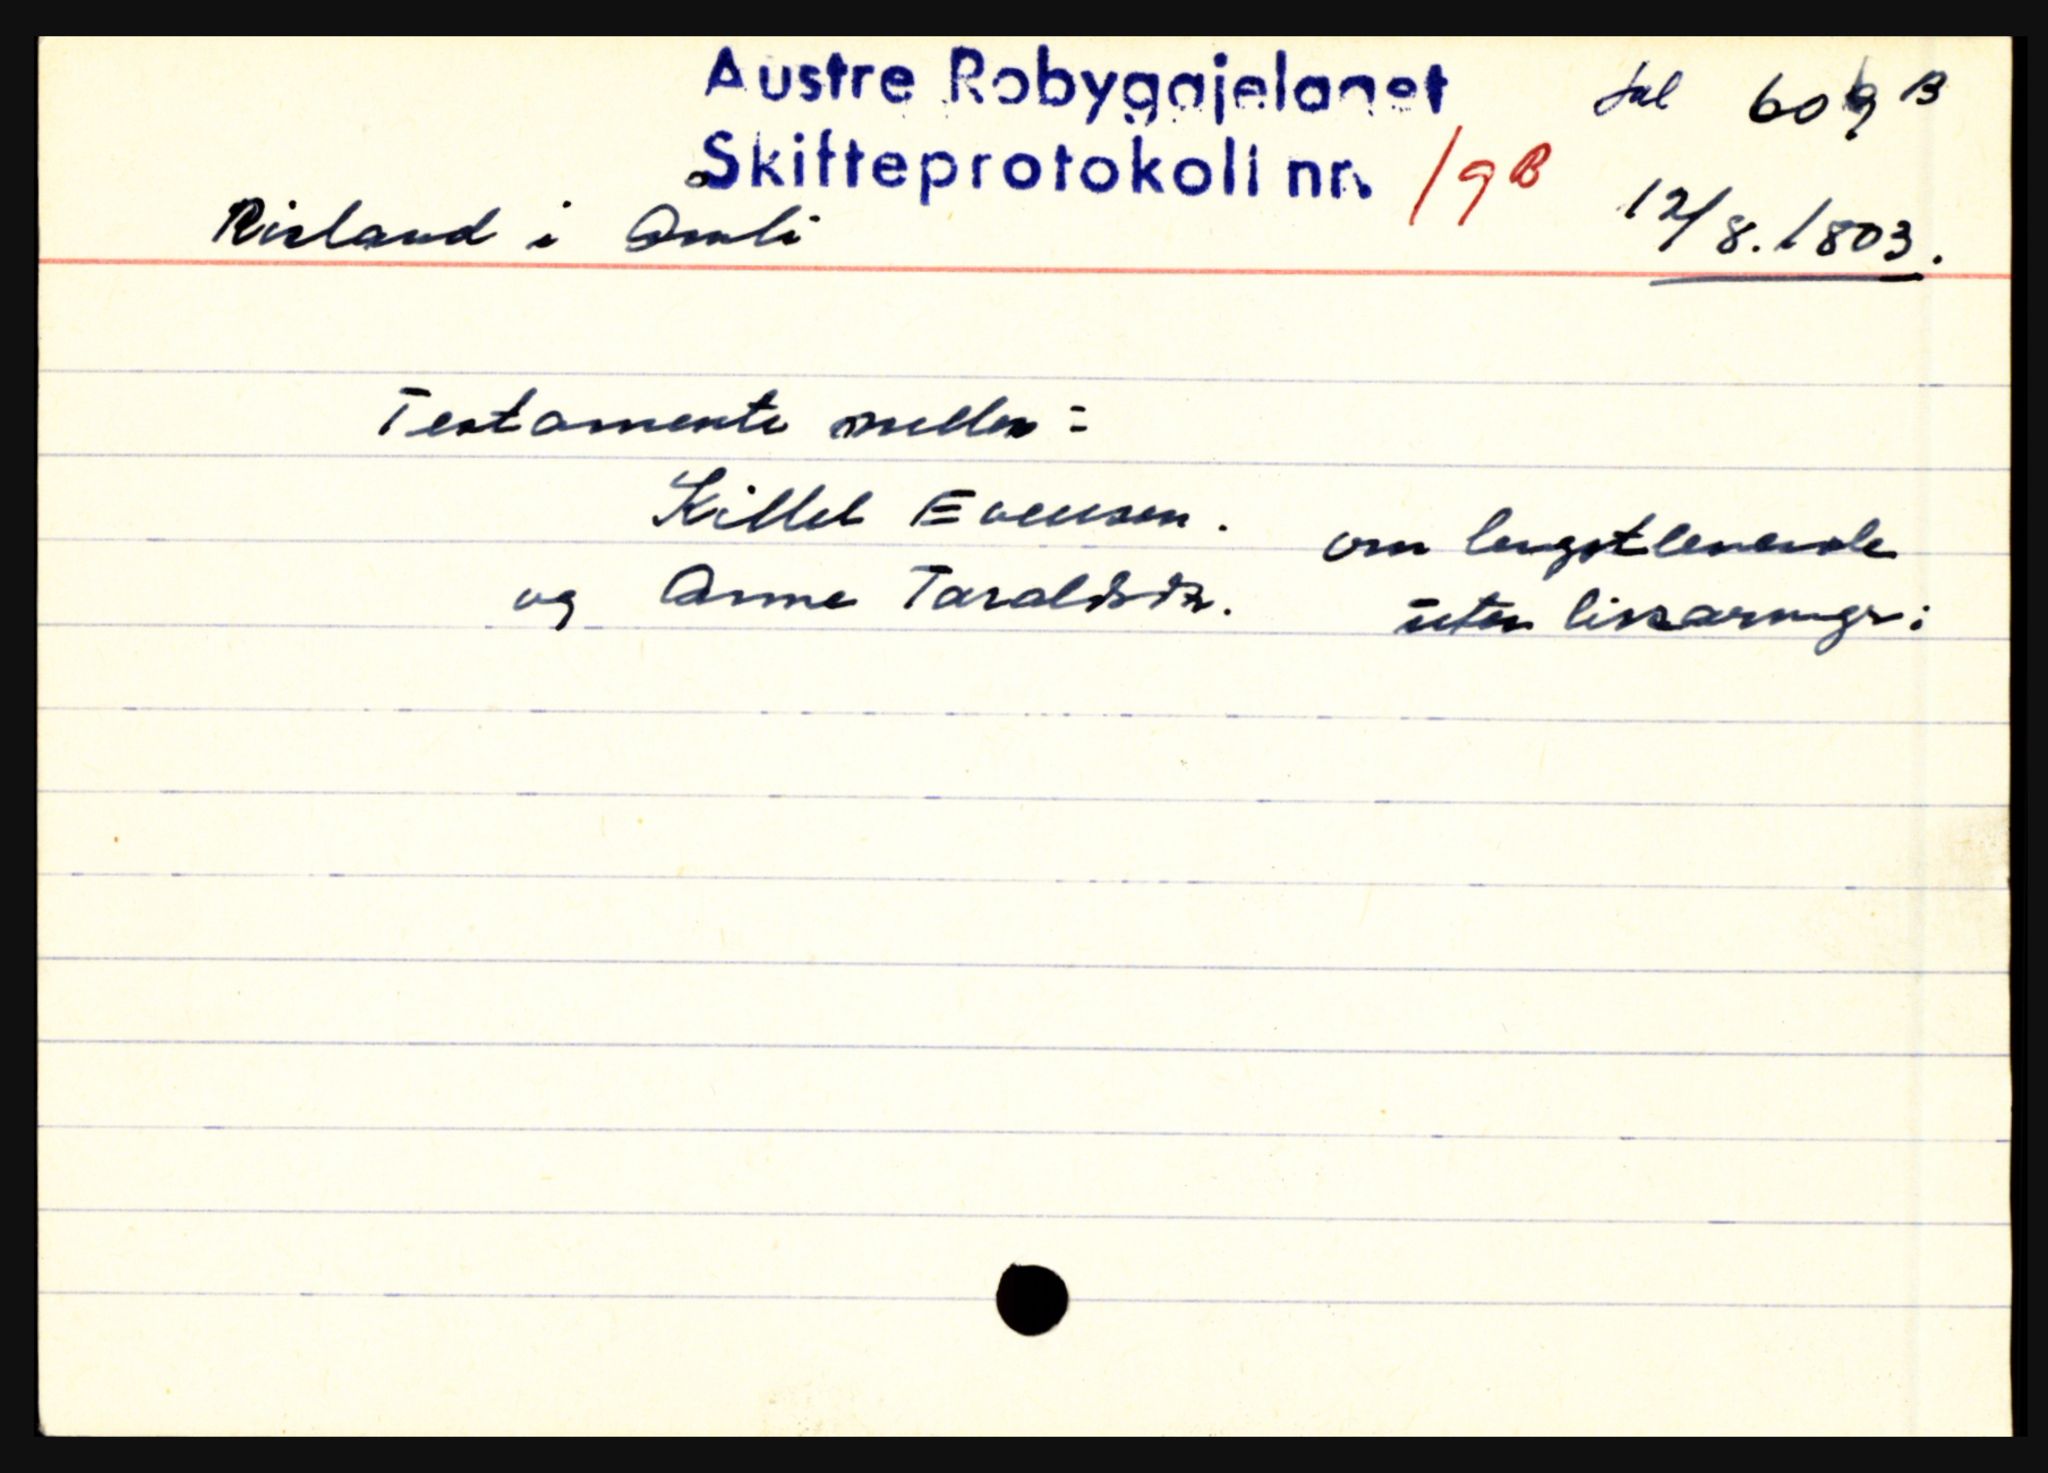 Austre Robygdjelaget fol 609 B
Skifteprotokoll nr. 19 B
Risland i Åmli 12/8.1803.
Testamente mellom:
Killel Evensen. om lengstlevende
og Anne Taraldsdr. uten livsarvinger: